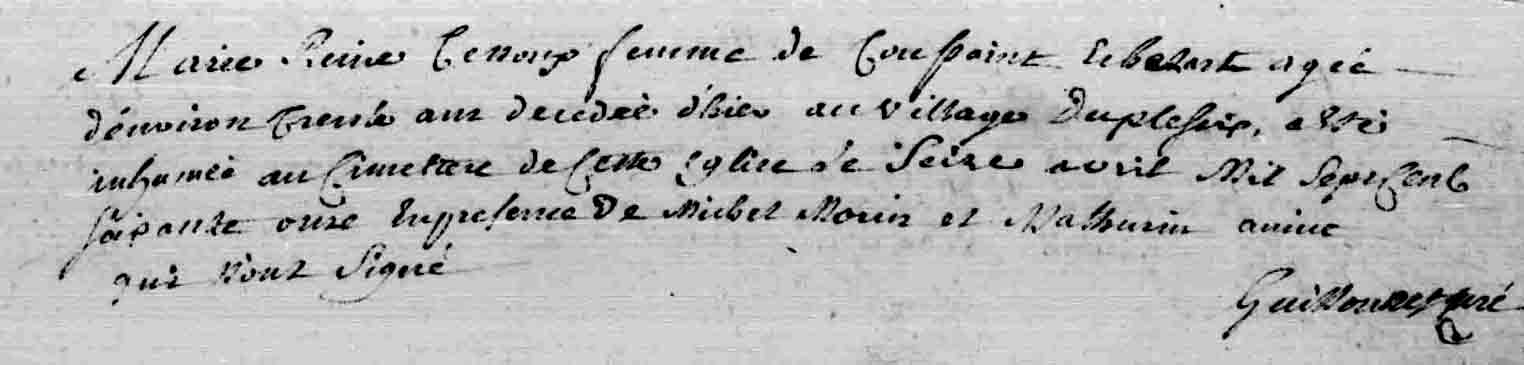 Marie Reine Terroux femme de Toussaint Lebezart agée
d'environ trente ans decedée d'hier au village Duplessix, a eté
inhumée au Cimettere de Cette Eglise le Seize avril Mil Sept Cent
soixante onze En presence De Michel Morin et Mathurin
qui n'ont Signé
curé